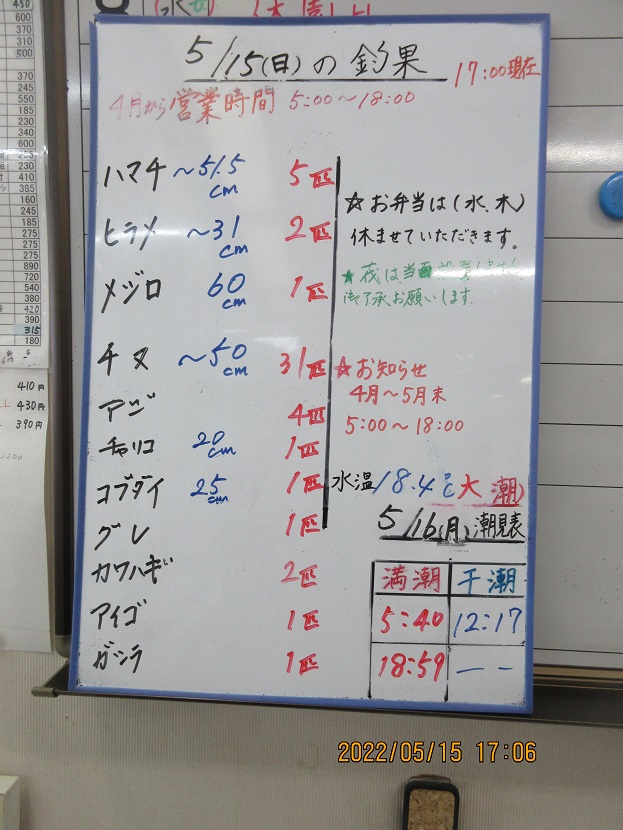 5/15(日)の釣果
17:00現在
4月から営業時間 5:00〜18:00
ハマチ 〜51.5cm 5匹
ヒラメ 〜31cm 2匹
メジロ 60cm 1匹
チヌ 〜50cm 31匹
アジ 4匹
チャリコ 20cm 1匹
コブダイ 25cm 1匹
グレ 1匹
カワハギ 2匹
アイゴ 1匹
ガシラ 1匹
☆お弁当は(水、木)
休ませていただきます。
★筏は当面
御了承お願いします。
☆お知らせ
4月〜5月末
5:00〜18:00
水温18.4℃ 大潮)
5/16(月)潮見表
満潮 干潮
5:40 12:17
18:59 ーー
450
600
370
315
180
410円
430円
390円
2022/05/15 17:06